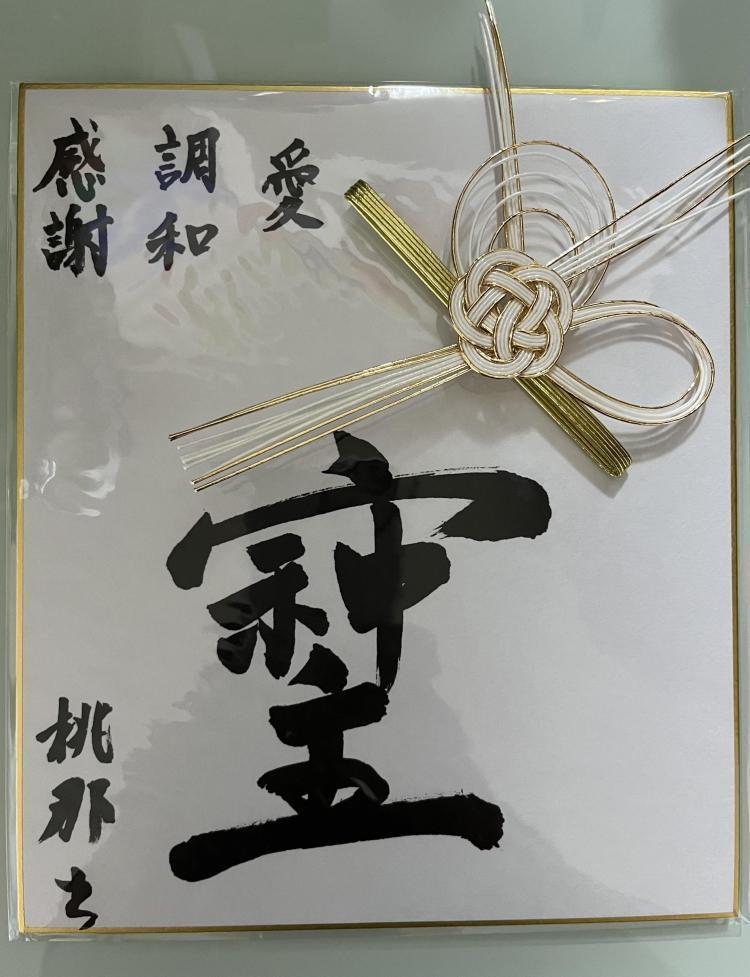 愛
調和
感謝
桃那